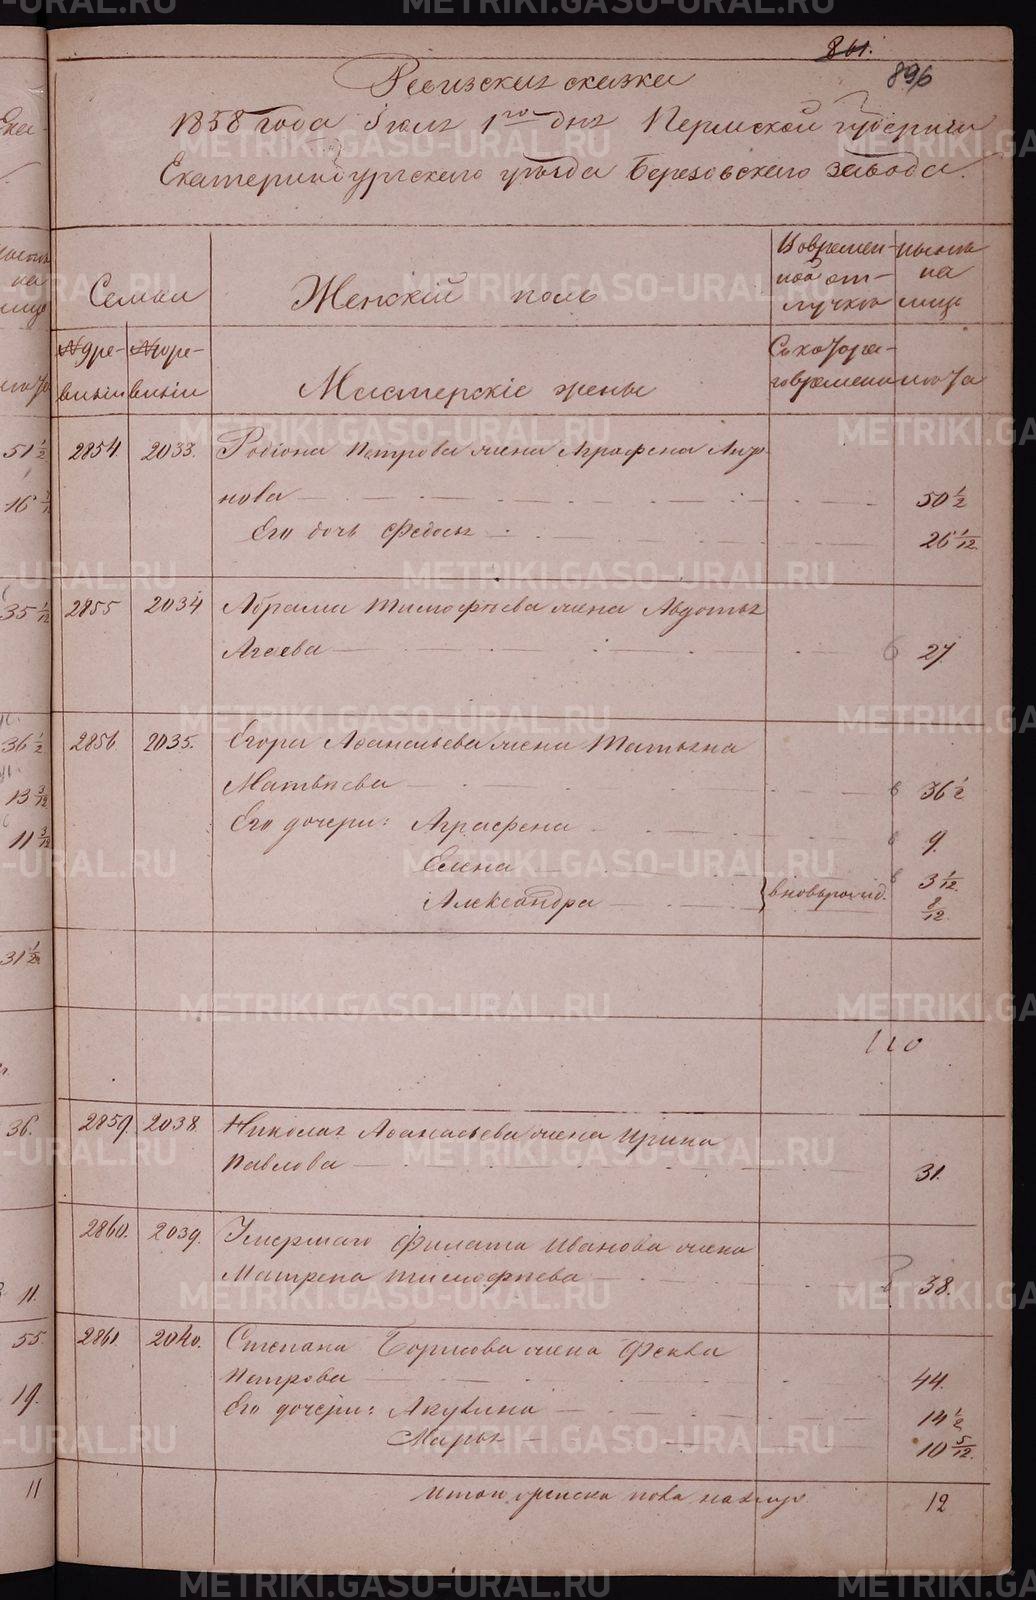 861.
896
Ревизская сказка
1858 года Iюля 1го дня Пермской губернiи
Екатеринбургскаго уѣзда Березовскаго завода.
Семьи
Женскiй полъ
Во времен-
ной от-
лучкѣ
на
лицо
№ по ре-
визiи
№ по ре-
визiи
Мастерскiе жены
Съ котора-
го времени
лѣта
2854. 2033. Родiона Петрова жена Аграфена
нова 50 1/2
Его дочь Федосья 26 1/12.
2855 2034 Абрама Тимофѣева жена Авдотья
Агеева 27
2856 2035. Егора Афанасьева жена Татьяна
Матвѣева 36 1/2
Его дочери: Аграфена 9.
Елена 3 1/12.
Александра вновьрожд. 8/12.
2859. 2038. Николая Афанасьева жена Ирина
Павлова 31.
2860. 2039. Умершаго Филата Иванова жена
Матрена Тимофѣева 38.
2861. 2040. Степана Борисова жена Фекла
Петрова 44.
Его дочери: Акулина 14 1/2
Марья 10 5/12.
Итого женска пола на лицо 12
51 1/2
35 1/12
36 1/2
13 3/12
11 3/12
31 1/2
36.
11.
55.
19.
11
METRIKI.GASO-URAL.RU